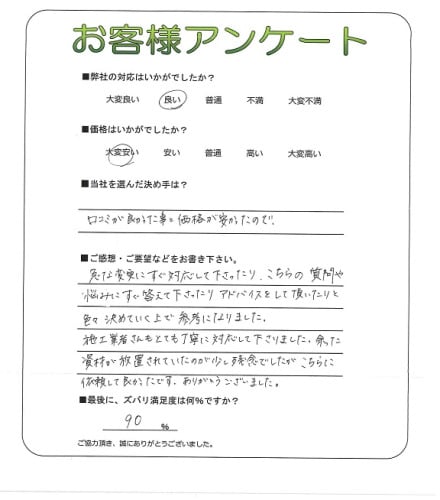 お客様アンケート
■弊社の対応はいかがでしたか？
大変良い 良い 普通 不満 大変不満
■価格はいかがでしたか？
大変安い 安い 普通 高い 大変高い
■当社を選んだ決め手は？
口コミが良かった事と価格が安かったので。
■ご感想・ご要望などをお書き下さい。
急な変更にすぐ対応して下さったり、こちらの質問や
悩みにすぐ答えて下さったりアドバイスをして頂いたりと
色々決めていく上で参考になりました。
施工業者さんもとても丁寧に対応して下さりました。余った
資材が放置されていたのが少し残念でしたがこちらに
依頼して良かったです。ありがとうございました。
■最後に、ズバリ満足度は何％ですか？
90 ％
ご協力頂き、誠にありがとうございました。